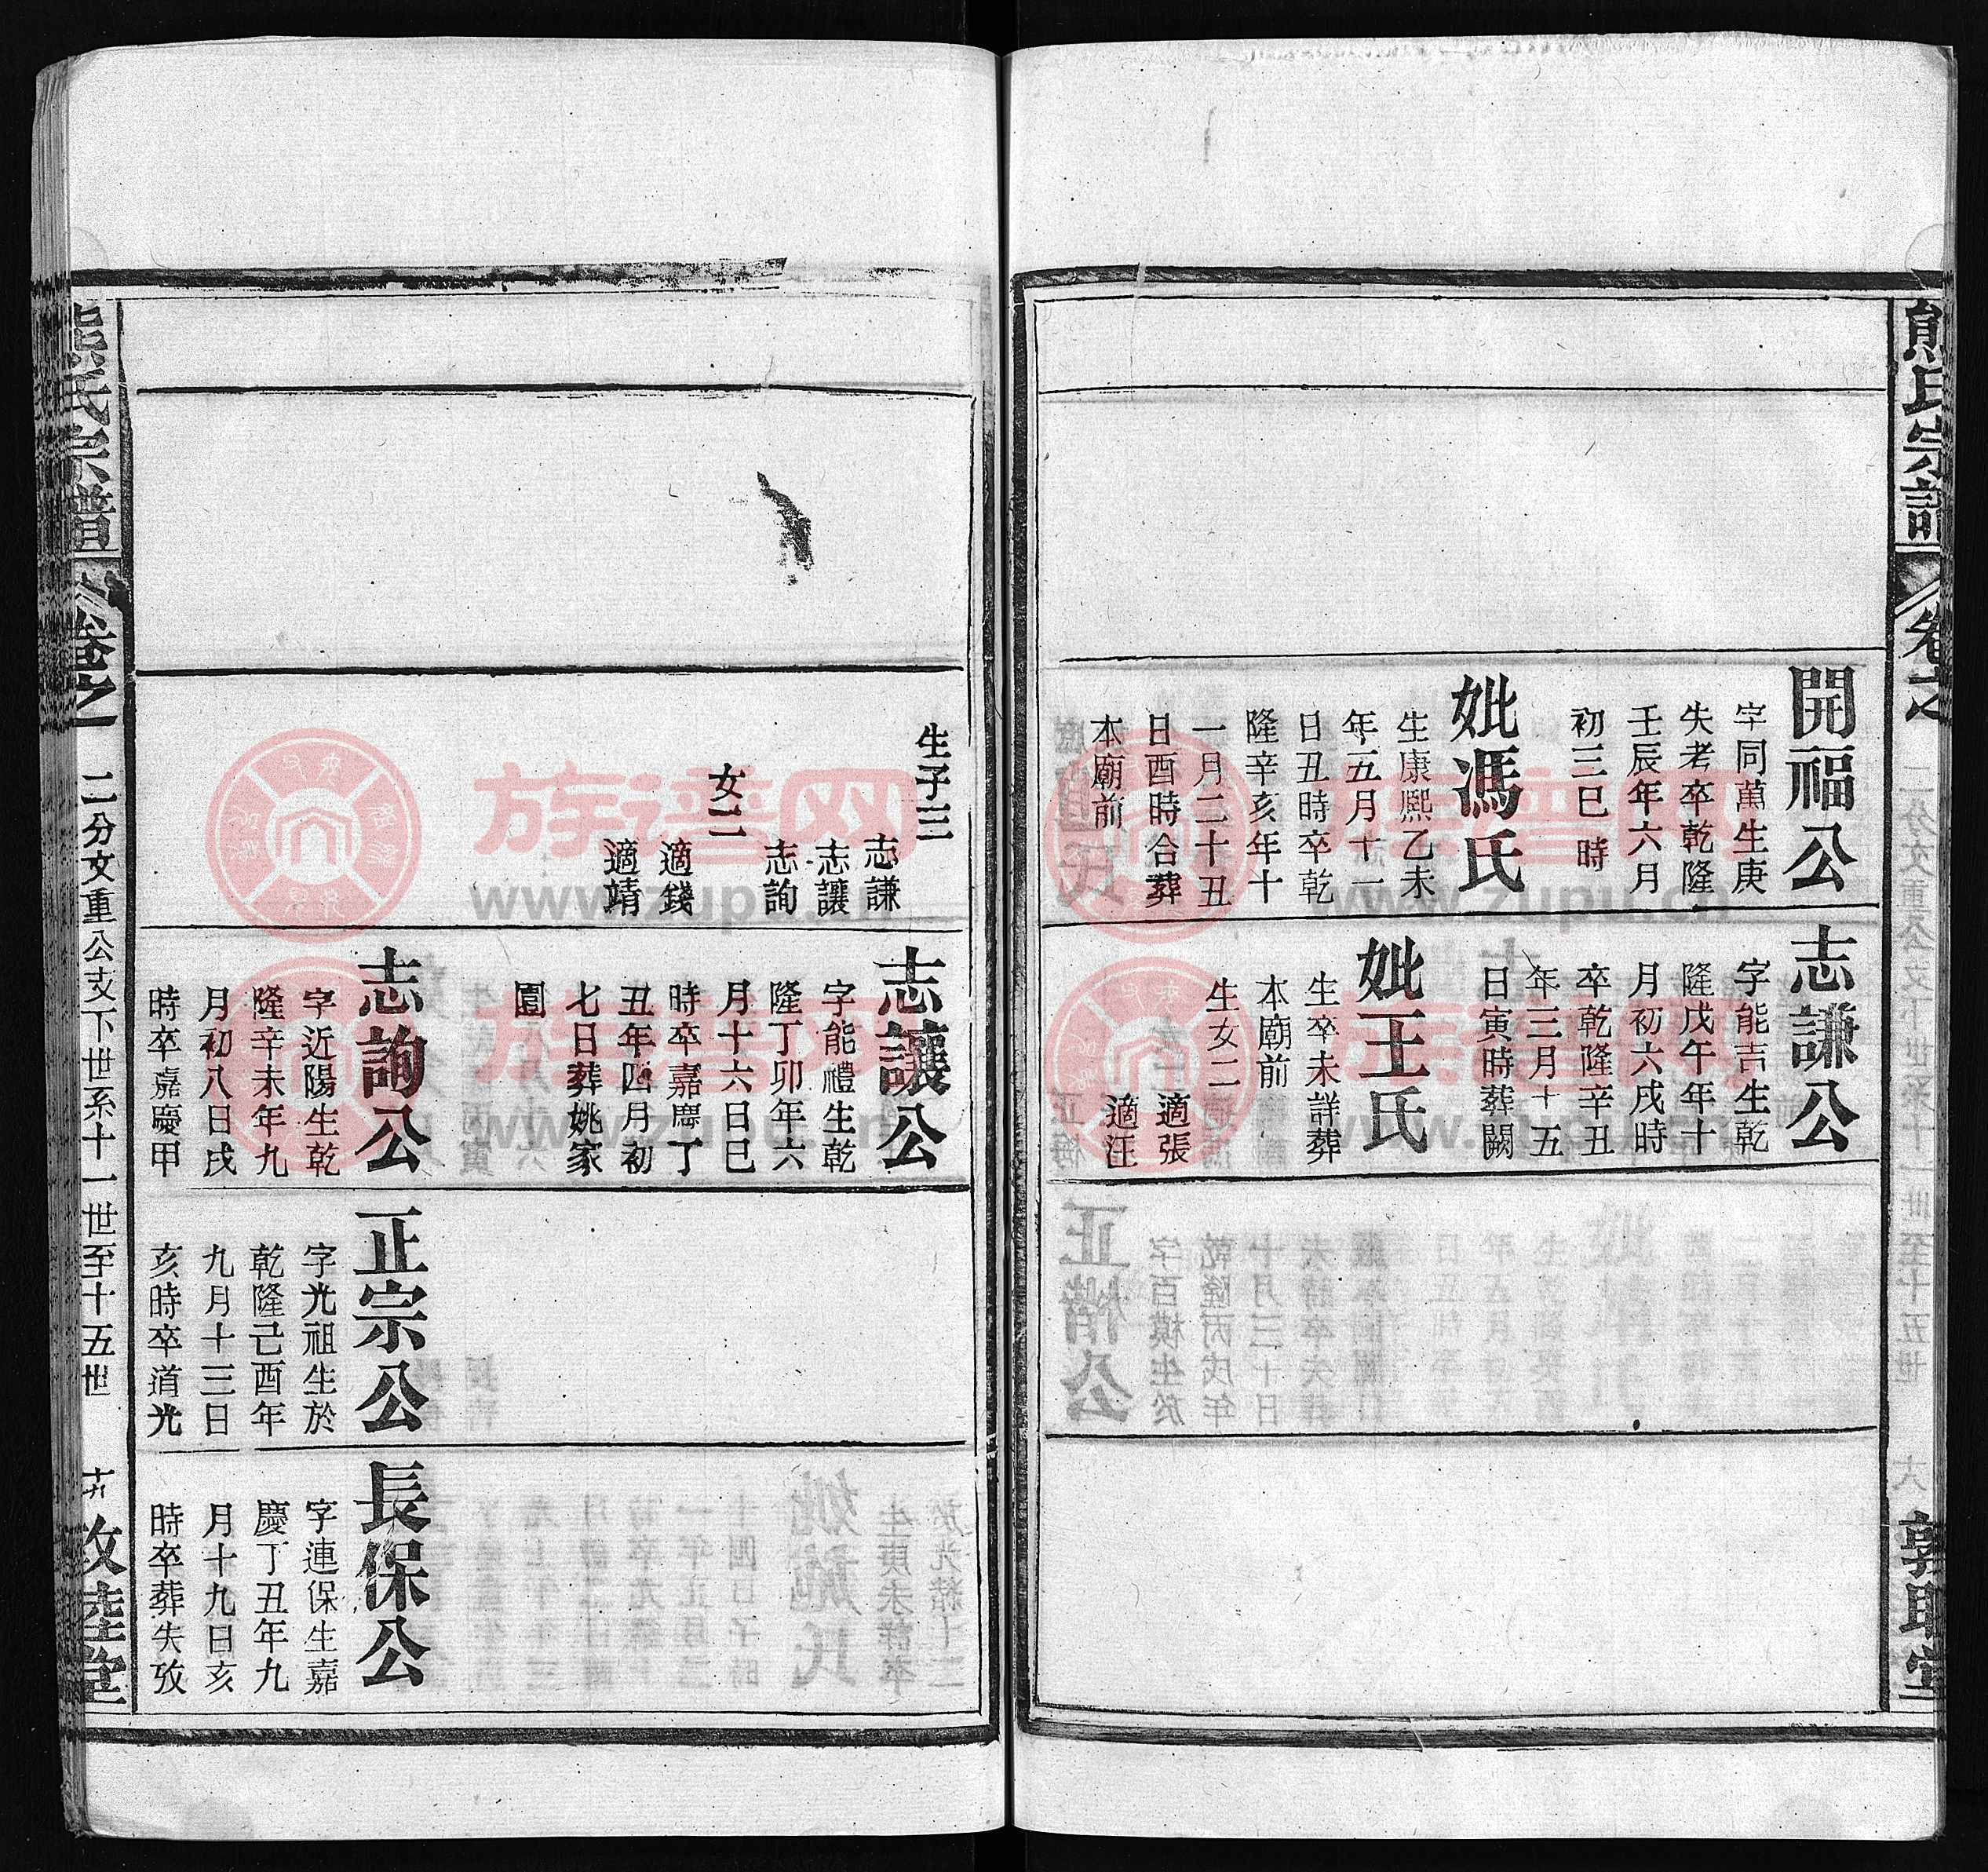 熊氏宗譜
卷之
敦睦堂
開福公
字同萬生庚
失考卒乾隆
壬辰年六月
初三巳時
妣馮氏
生康熙乙未
年五月十一
日丑時卒乾
隆辛亥年十
一月二十丑
日酉時合葬
本廟前
志謙公
字能吉生乾
隆戊午年十
月初六戌時
卒乾隆辛丑
年三月十五
日寅時葬闕
妣王氏
生卒未詳葬
本廟前
生女二
適張
適汪
生子三
志謙
志讓
志詢
女二
適錢
適靖
志讓公
字能禮生乾
隆丁卯年六
月十六日巳
時卒嘉慶丁
丑年四月初
七日葬姚家
園
志詢公
字近陽生乾
隆辛未年九
月初八日戌
時卒嘉慶甲
正宗公
字光祖生於
乾隆己酉年
九月十三日
亥時卒道光
長保公
字連保生嘉
慶丁丑年九
月十九日亥
時卒葬失攷
熊氏宗譜
卷之
二分文重公支下世系十一世至十五世
敦睦堂
族谱网
www.zupu.cn
族谱网
www.zupu.cn
族谱网
www.zupu.cn
族谱网
www.zupu.cn